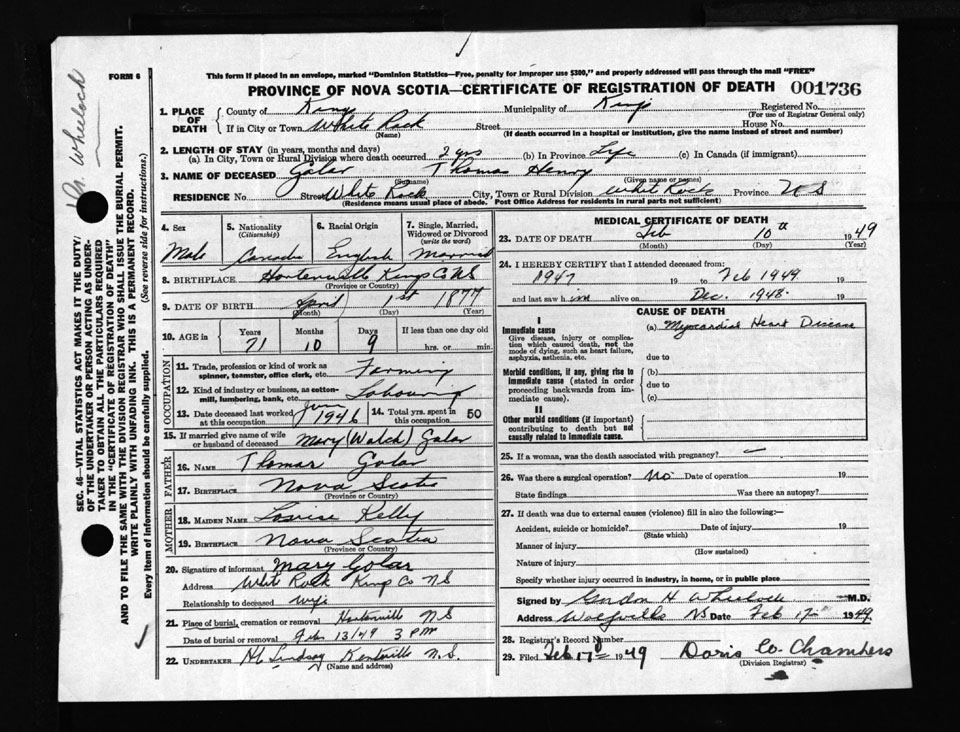 FORM 6
This form if placed in an envelope, marked "Dominion Statistics—Free, penalty for improper use $300," and properly addressed will pass through the mail "FREE"
PROVINCE OF NOVA SCOTIA—CERTIFICATE OF REGISTRATION OF DEATH 001736
Dr. Wheelock
SEC. 46—VITAL STATISTICS ACT MAKES IT THE DUTY
OF THE UNDERTAKER OR PERSON ACTING AS UNDER-
TAKER TO OBTAIN ALL THE PARTICULARS REQUIRED
IN THE "CERTIFICATE OF REGISTRATION OF DEATH"
AND TO FILE THE SAME WITH THE DIVISION REGISTRAR WHO SHALL ISSUE THE BURIAL PERMIT.
WRITE PLAINLY WITH UNFADING INK. THIS IS A PERMANENT RECORD.
Every item of information should be carefully supplied. (See reverse side for instructions.)
1. PLACE OF DEATH County of Kings Municipality of Kings Registered No.
(For use of Registrar General only)
If in City or Town White Rock Street House No.
(Name) (If death occurred in a hospital or institution, give the name instead of street and number)
2. LENGTH OF STAY (in years, months and days)
(a). In City, Town or Rural Division where death occurred 2 yrs (b) In Province Life (c) In Canada (if immigrant)
3. NAME OF DECEASED Golar Thomas Henry
(Surname) (Given name or names)
RESIDENCE No. Street White Rock City, Town or Rural Division White Rock Province N S
(Residence means usual place of abode. Post Office Address for residents in rural parts not sufficient)
4. Sex 5. Nationality (Citizenship) 6. Racial Origin 7. Single, Married, Widowed or Divorced (write the word)
Male Canada English Married
8. BIRTHPLACE Hortonville Kings Co NS
(Province or Country)
9. DATE OF BIRTH April 1st 1877
(Month) (Day) (Year)
10. AGE in Years Months Days If less than one day old
71 10 9 hrs. or min.
OCCUPATION
11. Trade, profession or kind of work as spinner, teamster, office clerk, etc. Farming
12. Kind of industry or business, as cotton-mill, lumbering, bank, etc. Labouring
13. Date deceased last worked at this occupation 1946 14. Total yrs. spent in this occupation 50
15. If married give name of wife or husband of deceased Mary (Walch) Golar
FATHER
16. NAME Thomas Golar
17. BIRTHPLACE Nova Scotia
(Province or Country)
MOTHER
18. MAIDEN NAME Louise Kelly
19. BIRTHPLACE Nova Scotia
(Province or Country)
20. Signature of informant Mary Golar
Address White Rock Kings Co NS
Relationship to deceased wife
21. Place of burial, cremation or removal Hortonville NS
Date of burial or removal Feb 13/49 3 PM
22. UNDERTAKER Lindsay Kentville N.S.
(Name and address)
MEDICAL CERTIFICATE OF DEATH
23. DATE OF DEATH Feb 10th 1949
(Month) (Day) (Year)
24. I HEREBY CERTIFY that I attended deceased from:
1947 19 to Feb 1949 19
and last saw him alive on Dec. 1948. 19
CAUSE OF DEATH
I
Immediate cause (a) Myocardial Heart Disease
Give disease, injury or complication which caused death, not the mode of dying, such as heart failure, asphyxia, asthenia, etc.
due to
Morbid conditions, if any, giving rise to immediate cause (stated in order proceeding backwards from immediate cause).
(b)
due to
(c)
II
Other morbid conditions (if important) contributing to death but not causally related to immediate cause.
25. If a woman, was the death associated with pregnancy? —
26. Was there a surgical operation? No Date of operation 19
State findings Was there an autopsy?
27. If death was due to external causes (violence) fill in also the following:—
Accident, suicide or homicide? Date of injury 19
(State which)
Manner of injury
(How sustained)
Nature of injury
Specify whether injury occurred in industry, in home, or in public place
Signed by Gordon H Wheelock M.D.
Address Wolfville NS Date Feb 17 1949
28. Registrar's Record Number
29. Filed Feb 17 1949 Doris Co. Chambers
(Division Registrar)